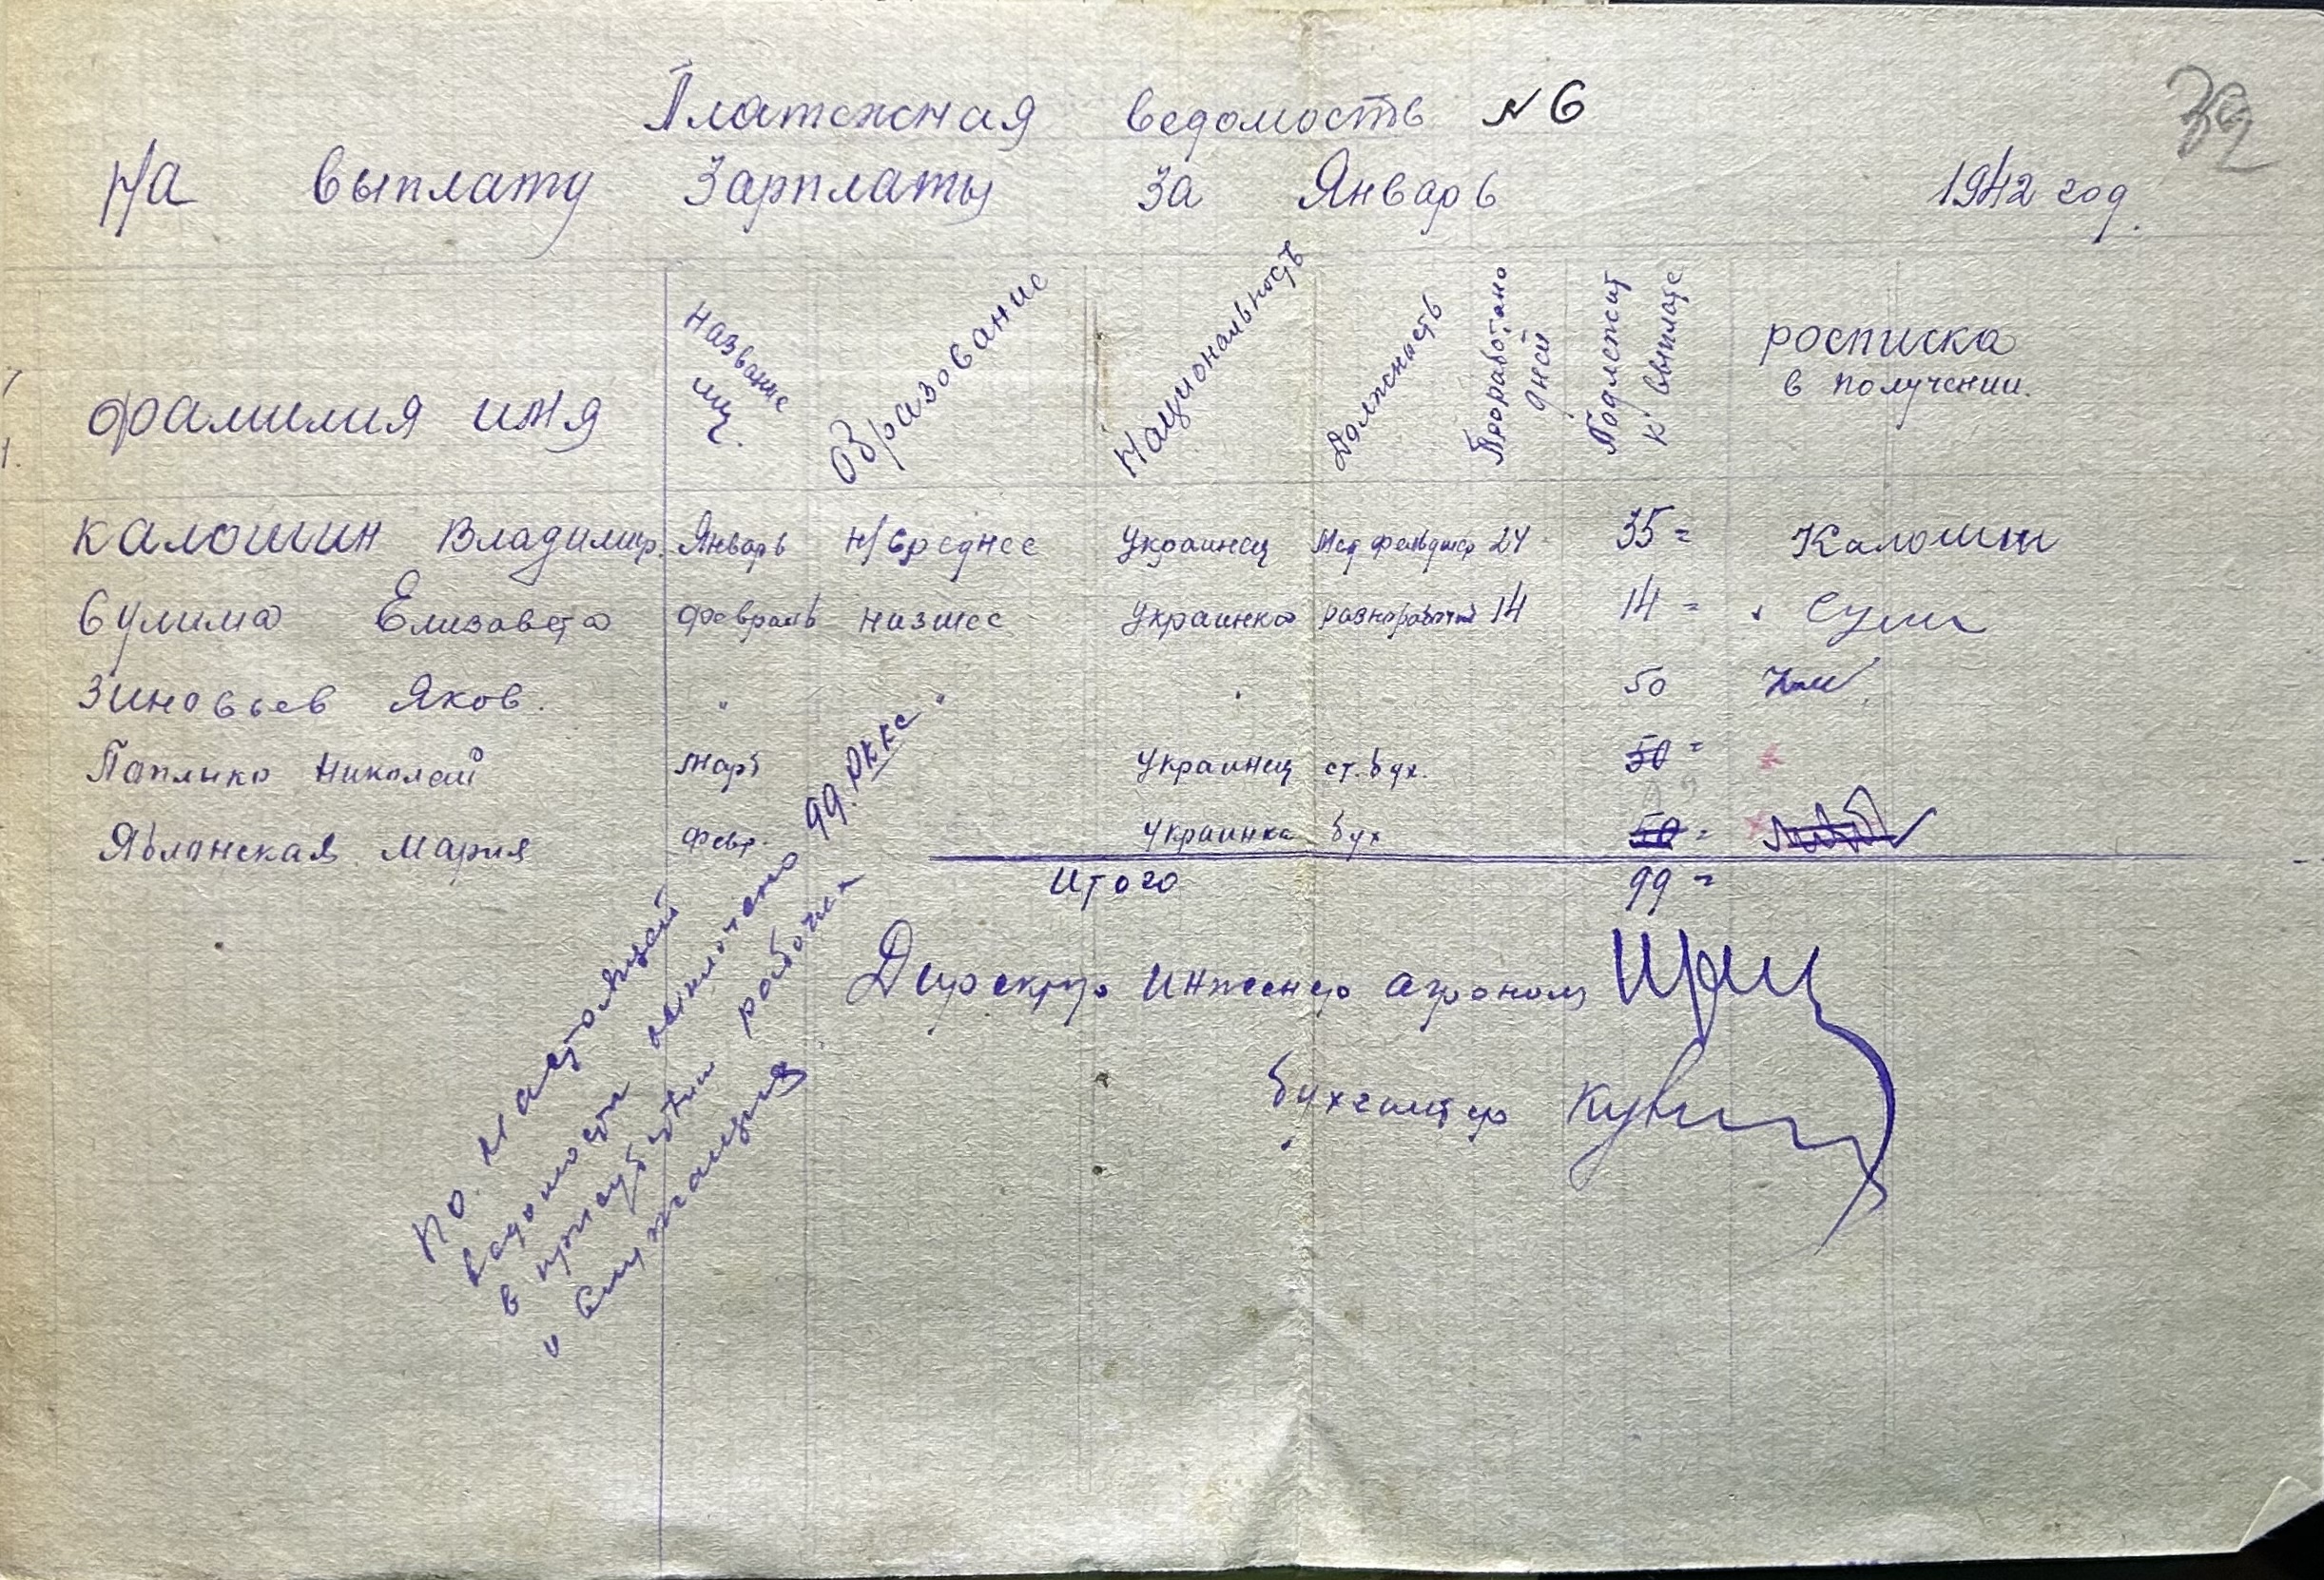 Платежная ведомость № 6
39
На выплату Зарплаты за Январь 1942 год.
фамилия имя
название мц.
образование
Национальность
Должность
Проработано дней
Подлежит к выплате
росписка в получении.
Калошин Владимир. Январь н/среднее Украинец Мед фельдшер 24 35= Калошин
Сулима Елизавета февраль низшее Украинка разнорабочий 14 14= Сули
Зиновьев Яков. " 50
Паплыко Николай март Украинец ст. бух. 50=
Яблонская Мария февр. Украинка бух 50=
Итого 99=
Директор Инженер агроном
бухгалтер
По настоящей
ведомости выплачено 99. ркке.
в присутствии рабочих
и служащих